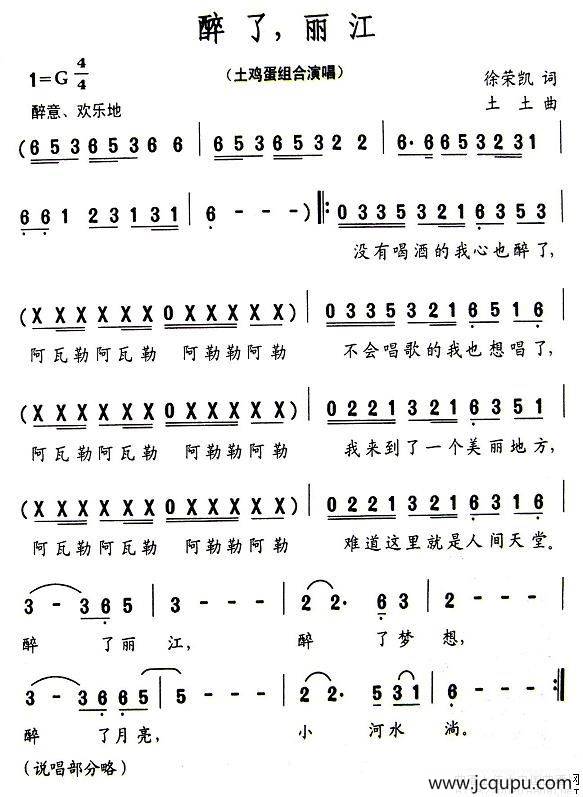 醉了，丽江
（土鸡蛋组合演唱）
1=G 4/4
徐荣凯 词
醉意、欢乐地
土 土 曲
(653 653 6 6 | 653 653 2 2 | 6· 6 653231
6 6 1 2 31 31 | 6 - - -) ‖: 0335 321 6 353
没有喝酒的我心也醉了,
(X X X X X X 0 X X X X X) | 0335 321 6 51 6
阿瓦勒阿瓦勒 阿勒勒阿勒 不会唱歌的我也想唱了,
(X X X X X X 0 X X X X X) | 0221 321 6 351
阿瓦勒阿瓦勒 阿勒勒阿勒 我来到了一个美丽地方,
(X X X X X X 0 X X X X X) | 0221 321 6 31 6
阿瓦勒阿瓦勒 阿勒勒阿勒 难道这里就是人间天堂。
3 - 3 6 5 | 3 - - - | 2 2· 6 3 | 2 - - -
醉 了丽 江, 醉 了梦 想,
3 - 3 6 6 5 | 5 - - - | 2 2· 5 31 | 6 - - - :‖
醉 了月亮, 小 河水 淌。
(说唱部分略)
www.jcqupu.com